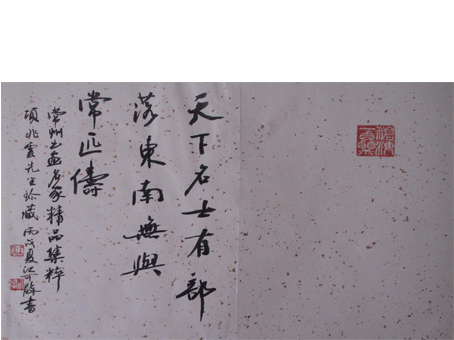 天下名士有部
落東南無與
常匹儔
常州书畫名家精品集粹
項兆雲先生珍藏 丙戌夏江可群書